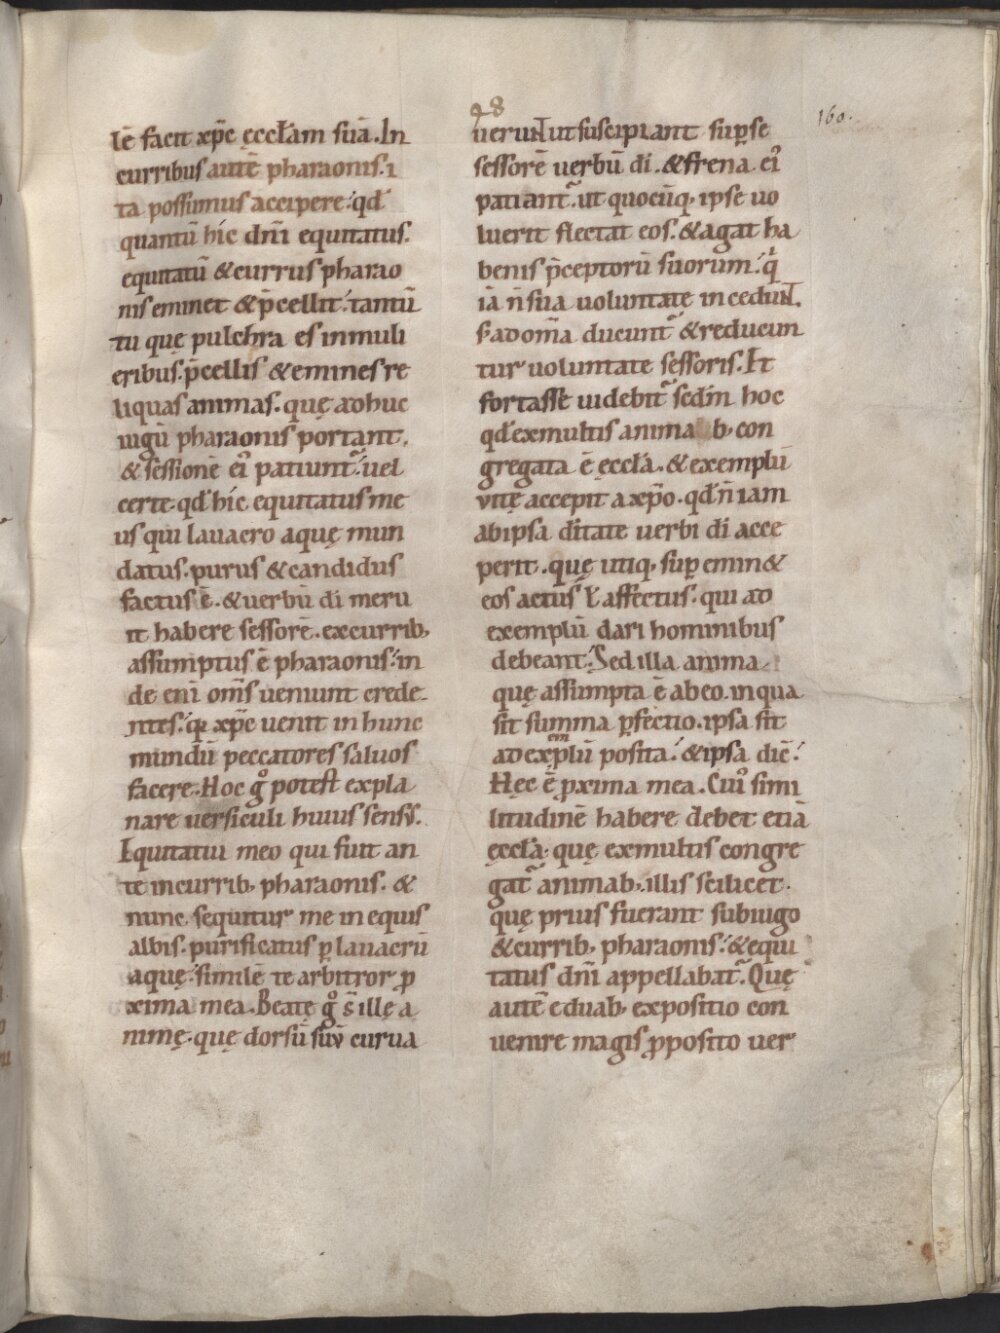 160.
98
lē facit xp̄c ęccłam suā. In
curribus autē pharaonis. i
ta possumus accipere. qđ
quantū hic dn̄i equitatus.
equitatū & currus pharao
nis eminet & p̄cellit. tantū
tu quę pulchra es in muli
eribus. p̄cellis & emines re
liquas animas. quę adhuc
iugū pharaonis portant.
& sessionē ei᾽ patiunt᷑. uel
certe. qđ hic equitatus me
us qui lauacro aquę mun
datus. purus & candidus
factus ē. & uerbū di meru
it habere sessorē. ex currib;
assumptus ē pharaonis. in
de eni om̄s ueniunt crede
ntes. qr xp̄c uenit in hunc
mundū peccatores saluos
facere. Hoc gͦ potest expla
nare uersiculi huius sensꝰ.
Equitatui meo qui fuit an
te in currib; pharaonis. &
nunc sequitur me in equis
albis. purificatus ꝑ lauacrū
aquę. similē te arbitror ꝓ
xima mea. Beatę gͦ s̄ illę a
nimę. quę dorsū suū curua
uerunt ut suscipiant suꝑ se
sessorē uerbū di. & frena ei᾽
patiant᷑. ut quocūq; ipse uo
luerit flectat eos. & agat ha
benis p̄ceptorū suorum. qͥ
iā n̄ sua uoluntate incedunt.
s; ad om̄ia ducunt᷑ & reducun
tur uoluntate sessoris. Et
fortasse uidebit᷑ sedm hoc
qđ ex multis anima b; con
gregata ē ęccła. & exemplū
vitę accepit a xp̄o. qđ n̄ iam
ab ipsa ditate uerbi di acce
perit. quę utiq; suꝑ emin&
eos actus ł affectus. qui ad
exemplū dari hominibus
debeant. Sed illa anima
quę assumpta ē ab eo. in qua
sit summa ꝑfectio. ipsa sit
ad exemplū posita. & ipsa dic̄.
Hęc ē ꝓxima mea. Cui᾽ simi
litudinē habere debet etiā
ęccła. quę ex multis congre
gat᷑ animab; illis scilicet.
quę prius fuerant sub iugo
& currib; pharaonis. & equi
tatus dn̄i appellabat᷑. Quę
autē e duab; expositio con
uenire magis ꝓposito uer